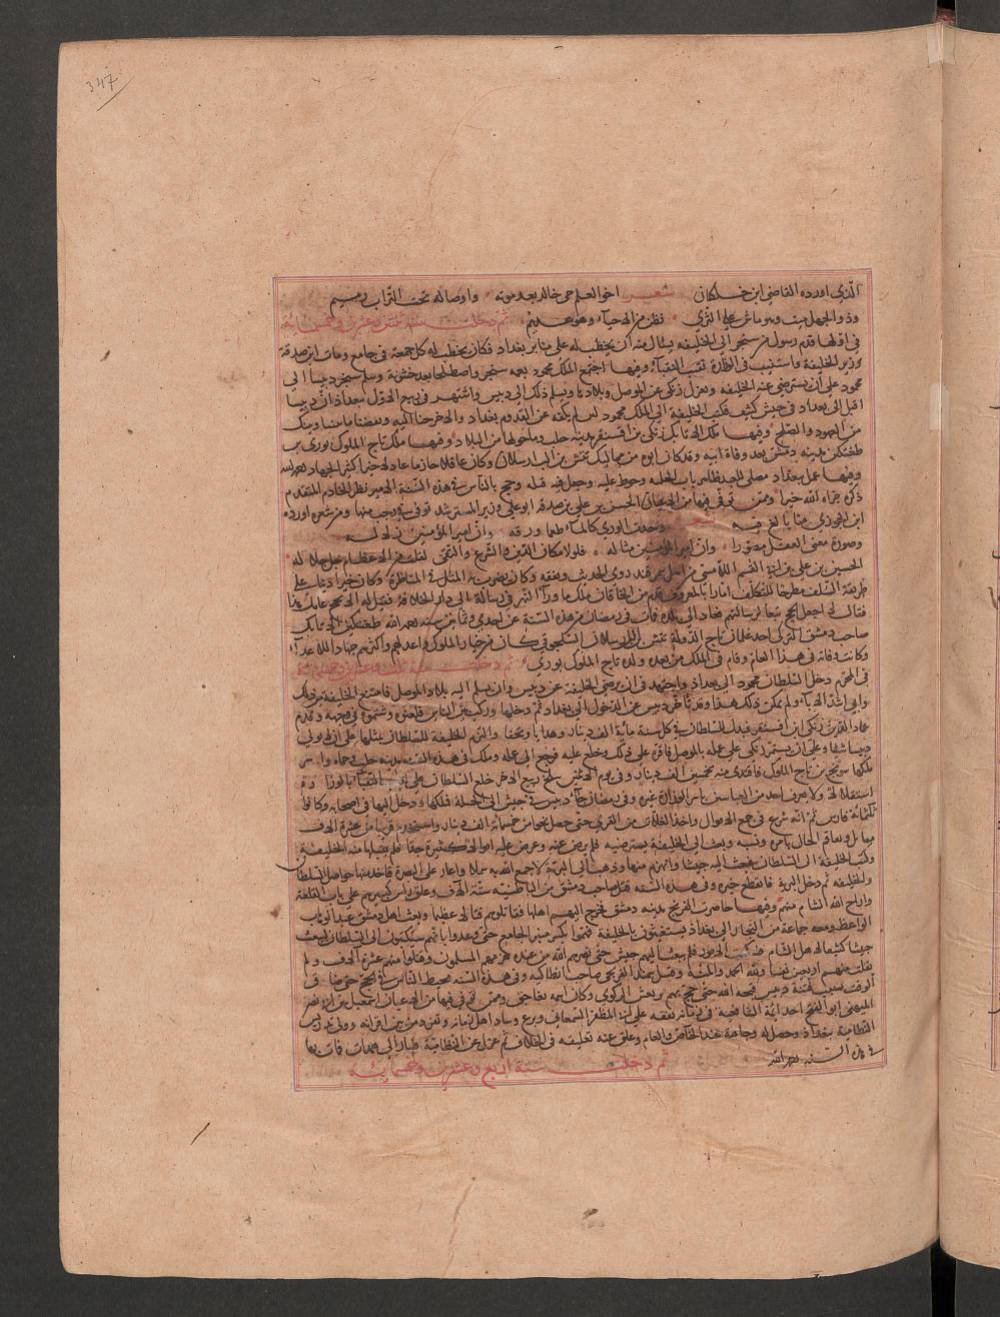 347
الذي اورده القاضي ابن خلكان شعر اخو العلم حي خالد بعد موته واوصاله تحت التراب رميم
وذو الجهل ميت وهو ماش على الثرى يظن من الاحياء وهو عديم ثم دخلت سنة ثنتين وعشرين وخمسمائة
في اولها قدم رسول من سنجر الى الخليفه يسال منه ان يخطب له على منابر بغداد فكان يخطب له كل جمعة في جامع ومات ابن صدقة
وزير الخليفة واستنيب في الوزارة نقيب النقباء وفيها اجتمع الملك محمود بعمه سنجر واصطلحا بعد خشونة وسلم سنجر دبيسا الى
محمود على ان يسترضي عنه الخليفه ويعزل زنكي عن الموصل وبلادها ويسلم ذلك الى دبيس واشتهر في ربيع الاول ببغداد ان دبيسا
اقبل الى بغداد في جيش كثيف فكتب الخليفة الى الملك محمود لئن لم يكفه عن القدوم بغداد والا خرجنا اليه ونقضنا ما بيننا وبينك
من العهود والصلح وفيها ملك الاتابك زنكي بن اقسنقر مدينة حلب وما حولها من البلاد وفيها ملك تاج الملوك بوري بن
طغتكين مدينه دمشق بعد وفاة ابيه وقد كان ابوه من مماليك تتش بن الب ارسلان وكان عاقلا حازما عادلا خيرا كثير الجهاد رحمه الله
وفيها عمل ببغداد مصلى للعيد ظاهر باب الحلبه وحوط عليه وجعل فيه قبله وحج بالناس في هذه السنة الامير نظر الخادم المتقدم
ذكره جزاه الله خيرا وممن توفي فيها من الاعيان الحسن بن علي بن صدقة ابو علي وزير المسترشد توفي في رجب منها ومن شعره اورده
ابن الجوزي مما بالغ فيه شعر وجدت الورى كالماء طعما ورقه وان امير المؤمنين زلاله
وصورة معنى العقل مصورا وان امير المؤمنين مثاله فلولا مكان الدين والشرع والتقى لقلت من الاعظام جل جلاله
الحسين بن علي بن ابي القسم اللامشي من اهل سمرقند روى الحديث وتفقه وكان يضرب به المثل في المناظرة وكان خيرا دينا على
طريقة السلف مطرحا للتكلف امارا بالمعروف قدم من الخاقان ملك ما وراء النهر في رسالة الى دار الخلافة فقيل له الا تحج عامك هذا
فقال لا اجعل الحج تبعا لرسالتهم فعاد الى بلده فمات في رمضان من هذه السنة عن احدى وثمانين سنه رحمه الله طغتكين الاتابك
صاحب دمشق التركي احد غلمان تاج الدولة تتش بن الب ارسلان السلجوقي كان من خيار الملوك واعدلهم واكثرهم جهادا للاعداء
وكانت وفاته في هذا العام وقام في الملك من بعده ولده تاج الملوك بوري ثم دخلت سنة ثلث وعشرين وخمسمائة
في المحرم دخل السلطان محمود الى بغداد واجتهد في ان يرضي الخليفة عن دبيس وان يسلم اليه بلاد الموصل فامتنع الخليفة من ذلك
وابى اشد الاباء ولم يمكن ذلك هذا وقد تاخر دبيس عن الدخول الى بغداد ثم دخلها وركب بين الناس فلعنوه وشتموه في وجهه وقدم
عماد الدين زنكي ابن اقسنقر فبذل للسلطان في كل سنة مائة الف دينار وهدايا وتحفا والتزم للخليفة للسلطان بمثلها على ان لا يولي
دبيسا شيا وعلى ان يستمر زنكي على عمله بالموصل فاقره على ذلك وخلع عليه فرجع الى عمله وملك في هذه السنه مدينة حلب وحماه واسر
ملكها سونج بن تاج الملوك فافتدى منه بخمسين الف دينار وفي يوم الاثنين سلخ ربيع الاخر خلع السلطان على نقيب النقباء بالوزارة
استقلالا ولا يعرف احد من العباسيين باشر الوزارة غيره وفي رمضان جاء دبيس في جيش الى الحلة فملكها ودخل اليها في اصحابه وكانوا
ثلثمائة فارس ثم انه شرع في جمع الاموال واخذ الغلات من القرى حتى حصل نحوا من خمسمائة الف دينار واستخدم قريبا من عشرة الاف
مقاتل وتفاقم الحال بامره وبعث الى الخليفة يسترضيه فلم يرض عنه وعرض عليه اموالا كثيرة جدا فلم يقبلها منه الخليفة
وكتب الخليفة الى السلطان فبعث اليه جيشا وانهزم منها وذهب الى البرية لا جمع الله به شملا واغار على البصرة فاخذ منها حواصل السلطان
والخليفه ثم دخل البرية فانقطع خبره وفي هذه السنه قتل صاحب دمشق من الباطنيه ستة الاف وعلق رأس كبيرهم على باب القلعة
واراح الله الشام منهم وفيها حاصرت الفرنج مدينه دمشق فخرج اليهم اهلها فقاتلوهم قتالا عظيما وبعث اهل دمشق عبد الوهاب
الواعظ ومعه جماعة من التجار الى بغداد يستغيثون بالخليفة فهموا بكسر منبر الجامع حتى وعدوا بانهم سيكتبون الى السلطان ليبعث
جيشا كثيفا لاهل الشام فسكنت الامور فلم يبعث اليهم جيش حتى نصرهم الله من عنده هزمهم المسلمون وقتلوا منهم عشرة الاف ولم
يفلت منهم اربعين نفسا ولله الحمد والمنة وقتل بيمند الفرنجي صاحب انطاكيه وفي هذه السنه
الوقت بسبب فتنة دبيس قبحه الله حتى حج بهم برنقش الزكوي وكان اسمه بغاجق وممن توفي فيها من الاعيان
الميهني ابو الفتح احد ائمة الشافعية في زمانه تفقه على ابي المظفر السمعاني وبرع وساد اهل زمانه وتفرد من بين اقرانه وولي تدريس
النظاميه ببغداد وحصل له وجاهة عند الخاص والعام وعلق عنه تعليقه في الخلاف ثم عزل عن النظاميه فسار الى همدان فمات بها
في هذه السنه رحمه الله ثم دخلت سنة اربع وعشرين وخمسمائة